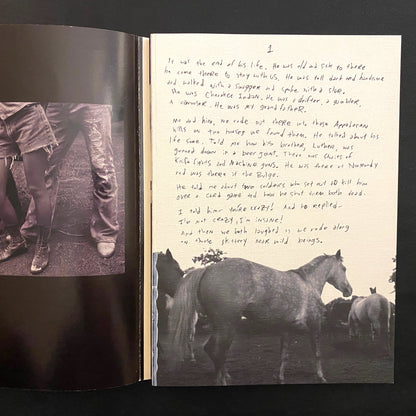 1
It was the end of his life. He was old and sick so there
he came there to stay with us. He was tall dark and handsome
and walked with a swagger and spoke with a slur.
He was Cherokee Indian. He was a drifter, a gambler,
a carouser. He was my grandfather.
Me and him, we rode out there into those Appalachian
hills on two horses we found there. He talked about his
life some. Told me how his brother, Luther, was
gunned down in a beer joint. There was stories of
knife fights and machine guns. He was there at Normandy
and was there at the Bulge.
He told me about two soldiers who set out to kill him
over a card game and how he shot them both dead.
I told him: You're crazy! And he replied-
I'm not crazy, I'm insane!
And then we both laughed as we rode along
on those skittery near wild beings.